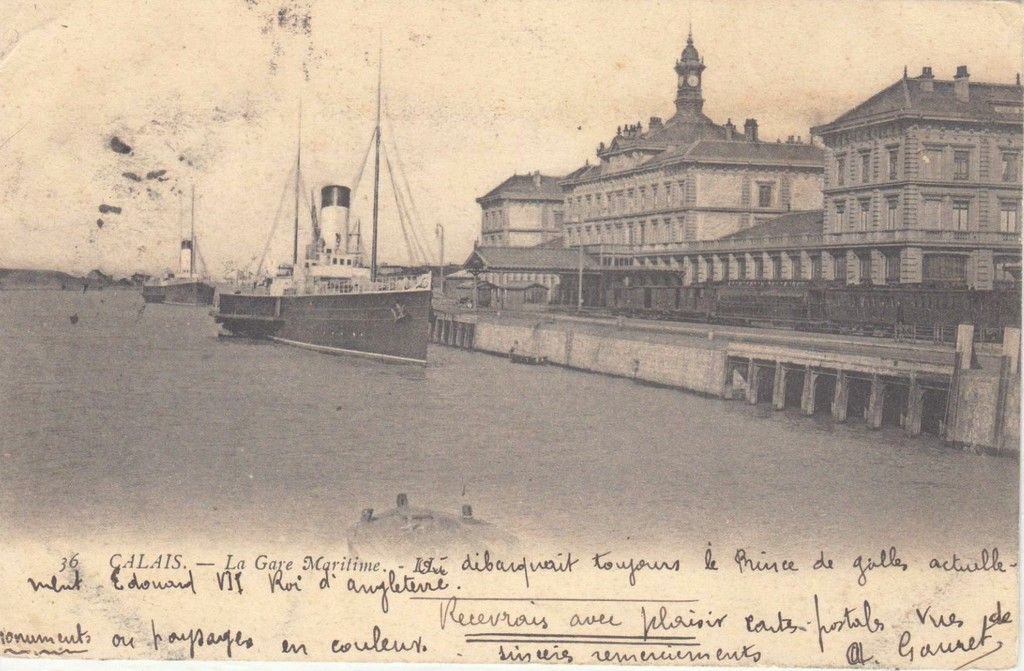 36 CALAIS. — La Gare Maritime. - Ici dibarquait toujours le Prince de galles actuelle-
ment Edouard VII Roi d'angleterre.
Recevrais avec plaisir cartes-postales vues de
monuments ou paysages en couleurs.
sincères remerciements